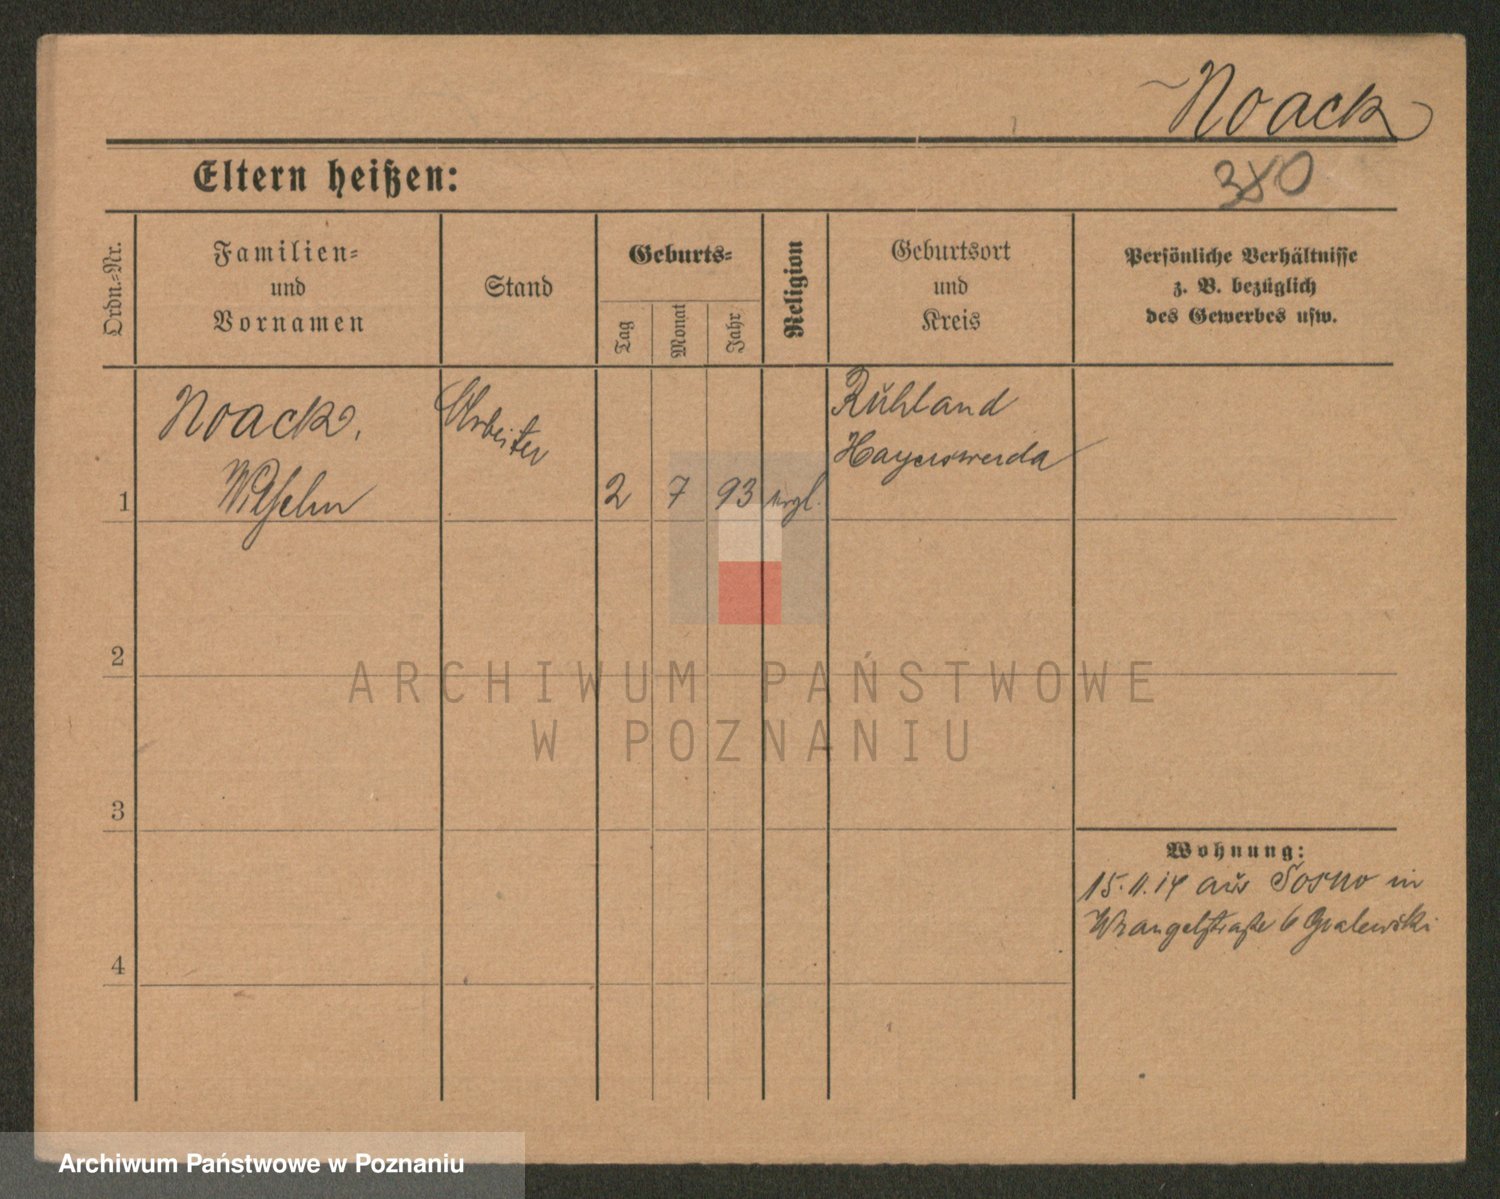 Noack
380
Eltern heißen:
Ordn.-Nr.
Familien-
und
Vornamen
Stand
Geburts-
Tag
Monat
Jahr
Religion
Geburtsort
und
Kreis
Persönliche Verhältnisse
z. B. bezüglich
des Gewerbes usw.
1
Noack,
Wilhelm
Arbeiter
2 7 93
Ruhland
Hayerswerda
2
3
4
ARCHIWUM PAŃSTWOWE
W POZNANIU
Wohnung:
15.11.14 aus Sosno in
Wrangelstraße 6 Gralewski
Archiwum Państwowe w Poznaniu